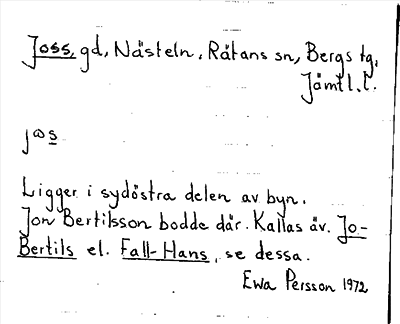 Joss, gd, Nästeln, Rätans sn, Bergs tg,
Jämtl. l.
jωs
Ligger i sydöstra delen av byn.
Jon Bertilsson bodde där. Kallas äv. Jo-
Bertils el. Fall-Hans, se dessa.
Ewa Persson 1972